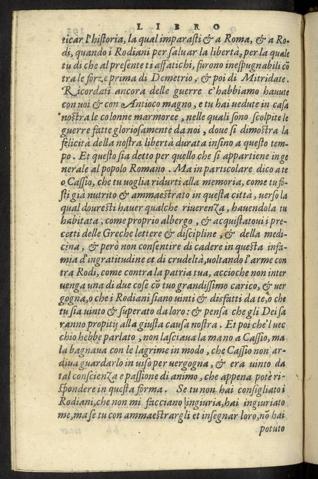 LIBRO
ticar l'historia, la qual imparasti & a Roma, & a Ro-
di, quando i Rodiani per saluar la libertà, per la quale
tu di che al presente ti affatichi, furono inespugnabili cõ
tra le forze prima di Demetrio, & poi di Mitridate.
Ricordati ancora delle guerre c'habbiamo hauute
con uoi & con Antioco magno, e tu hai uedute in casa
nostra le colonne marmoree, nelle quali sono scolpite le
guerre fatte gloriosamente da noi, doue si dimostra la
felicità della nostra libertà durata insino a questo tem-
po. Et questo sia detto per quello che si appartiene in ge
nerale al popolo Romano. Ma in particolare dico a te
o Cassio, che tu uoglia ridurti alla memoria, come tu fo-
sti già nutrito & ammaestrato in questa città, uerso la
qual douresti hauer qualche riuerenza, hauendola tu
habitata, come proprio albergo, & acquistatoui i pre-
cetti delle Greche lettere & discipline, & della medi-
cina, & però non consentire di cadere in questa infa-
mia d'ingratitudine et di crudeltà, uoltando l'arme con
tra Rodi, come contra la patria tua, accioche non inter
uenga una di due cose cõ tuo grandissimo carico, & uer
gogna, o che i Rodiani siano uinti & disfatti da te, ò che
tu sia uinto & superato da loro: & pensa che gli Dei sa
ranno propitij alla giusta causa nostra. Et poi che'l uec
chio hebbe parlato, non lasciaua la mano a Cassio, ma
la bagnaua con le lagrime in modo, che Cassio non ar-
diua guardarlo in uiso per uergogna, & era uinto da
tal conscienza e passione di animo, che appena potè ri-
spondere in questa forma. Se tu non hai consigliato i
Rodiani, che non mi facciano ingiuria, hai ingiuriato
me, ma se tu con ammaestrargli et insegnar loro, nõ hai
potuto